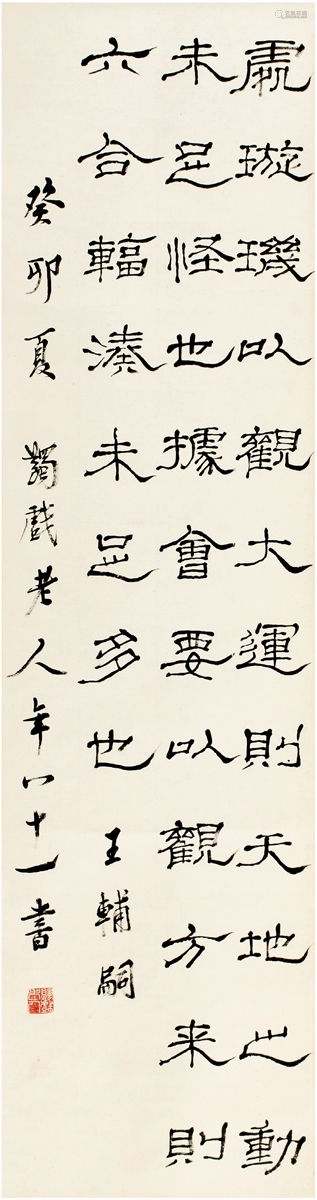 處璇璣以觀大運則天地之動
未足怪也據會要以觀方來則
六合輻湊未足多也 王輔嗣
癸卯夏 蠲戲老人年八十一書